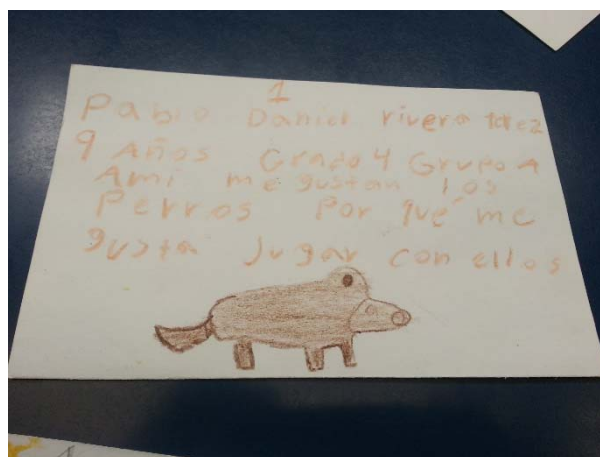 1
Pablo Daniel rivera
9 Años Grado 4 Grupo A
Ami me gustan los
Perros Por qué me
gusta Jugar con ellos